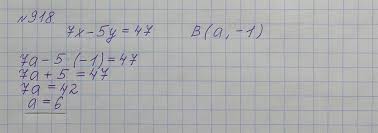 №918
7x-5y=47 B(a,-1)
7a-5·(-1)=47
7a+5=47
7a=42
a=6